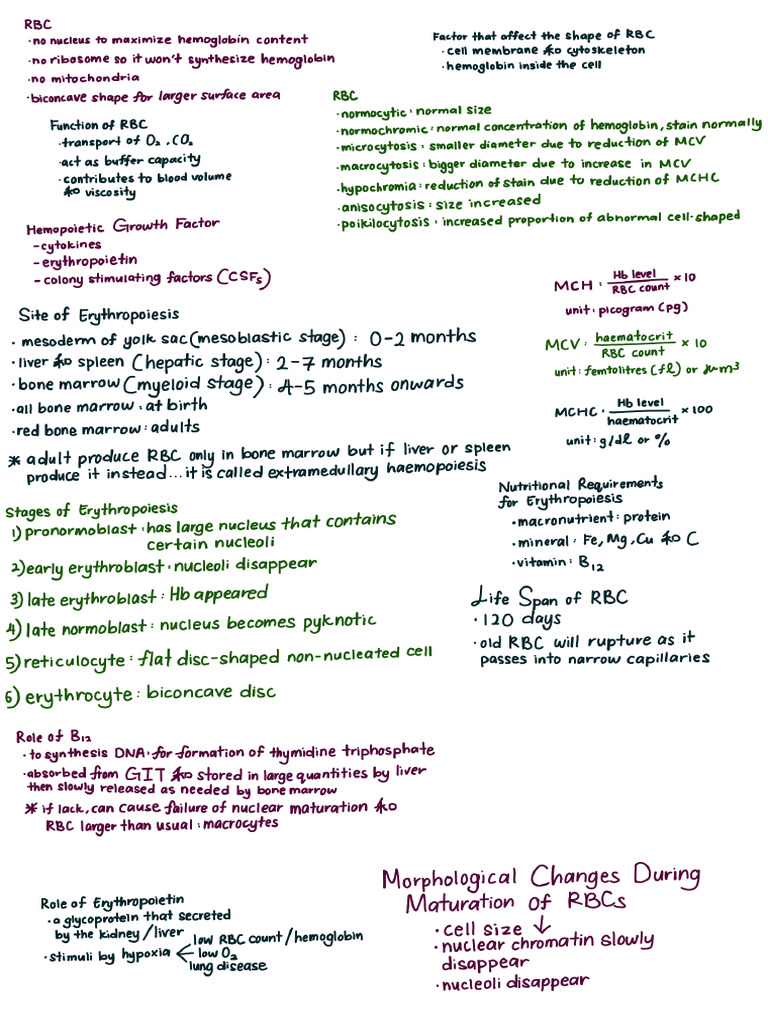 RBC
· no nucleus to maximize hemoglobin content
· no ribosome so it won't synthesize hemoglobin
· no mitochondria
· biconcave shape for larger surface area
Factor that affect the shape of RBC
· cell membrane & cytoskeleton
· hemoglobin inside the cell
Function of RBC
· transport of O₂, CO₂
· act as buffer capacity
· contributes to blood volume
& viscosity
RBC
· normocytic: normal size
· normochromic: normal concentration of hemoglobin, stain normally
· microcytosis: smaller diameter due to reduction of MCV
· macrocytosis: bigger diameter due to increase in MCV
· hypochromia: reduction of stain due to reduction of MCHC
· anisocytosis: size increased
· poikilocytosis: increased proportion of abnormal cell-shaped
Hemopoietic Growth Factor
- cytokines
- erythropoietin
- colony stimulating factors (CSFs)
MCH: Hb level / RBC count × 10
unit: picogram (pg)
MCV: haematocrit / RBC count × 10
unit: femtolitres (fl) or μm³
MCHC: Hb level / haematocrit × 100
unit: g/dl or %
Site of Erythropoiesis
· mesoderm of yolk sac (mesoblastic stage): 0-2 months
· liver & spleen (hepatic stage): 2-7 months
· bone marrow (myeloid stage): 4-5 months onwards
· all bone marrow: at birth
· red bone marrow: adults
* adult produce RBC only in bone marrow but if liver or spleen
produce it instead... it is called extramedullary haemopoiesis
Nutritional Requirements
for Erythropoiesis
· macronutrient: protein
· mineral: Fe, Mg, Cu & C
· vitamin: B₁₂
Stages of Erythropoiesis
1) pronormoblast: has large nucleus that contains
certain nucleoli
2) early erythroblast: nucleoli disappear
3) late erythroblast: Hb appeared
4) late normoblast: nucleus becomes pyknotic
5) reticulocyte: flat disc-shaped non-nucleated cell
6) erythrocyte: biconcave disc
Life Span of RBC
· 120 days
· old RBC will rupture as it
passes into narrow capillaries
Role of B₁₂
· to synthesis DNA: for formation of thymidine triphosphate
· absorbed from GIT & stored in large quantities by liver
then slowly released as needed by bone marrow
* if lack, can cause failure of nuclear maturation &
RBC larger than usual: macrocytes
Role of Erythropoietin
· a glycoprotein that secreted
by the kidney/liver
· stimuli by hypoxia < low RBC count/hemoglobin
low O₂
lung disease
Morphological Changes During
Maturation of RBCs
· cell size ↓
· nuclear chromatin slowly
disappear
· nucleoli disappear